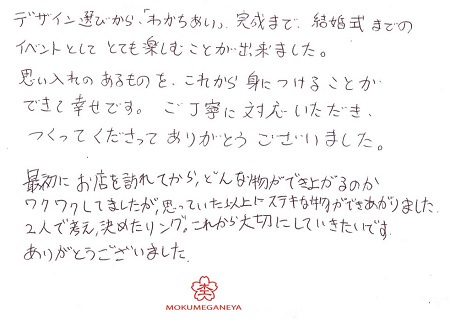 デザイン選びから、「わかちあい」、完成まで、結婚式までの
イベントとして とても楽しむことが出来ました。
思い入れの あるものを、これから 身につける ことが
できて 幸せです。 ご丁寧に 対応 いただき、
つくってくださって ありがとう ございました。
最初に お店を訪れてから、どんな物ができ上がるのか
ワクワクしてましたが、思っていた以上に ステキな物ができあがりました。
2人で考え、決めたリング。これから大切にしていきたいです。
ありがとうございました。
MOKUMEGANEYA